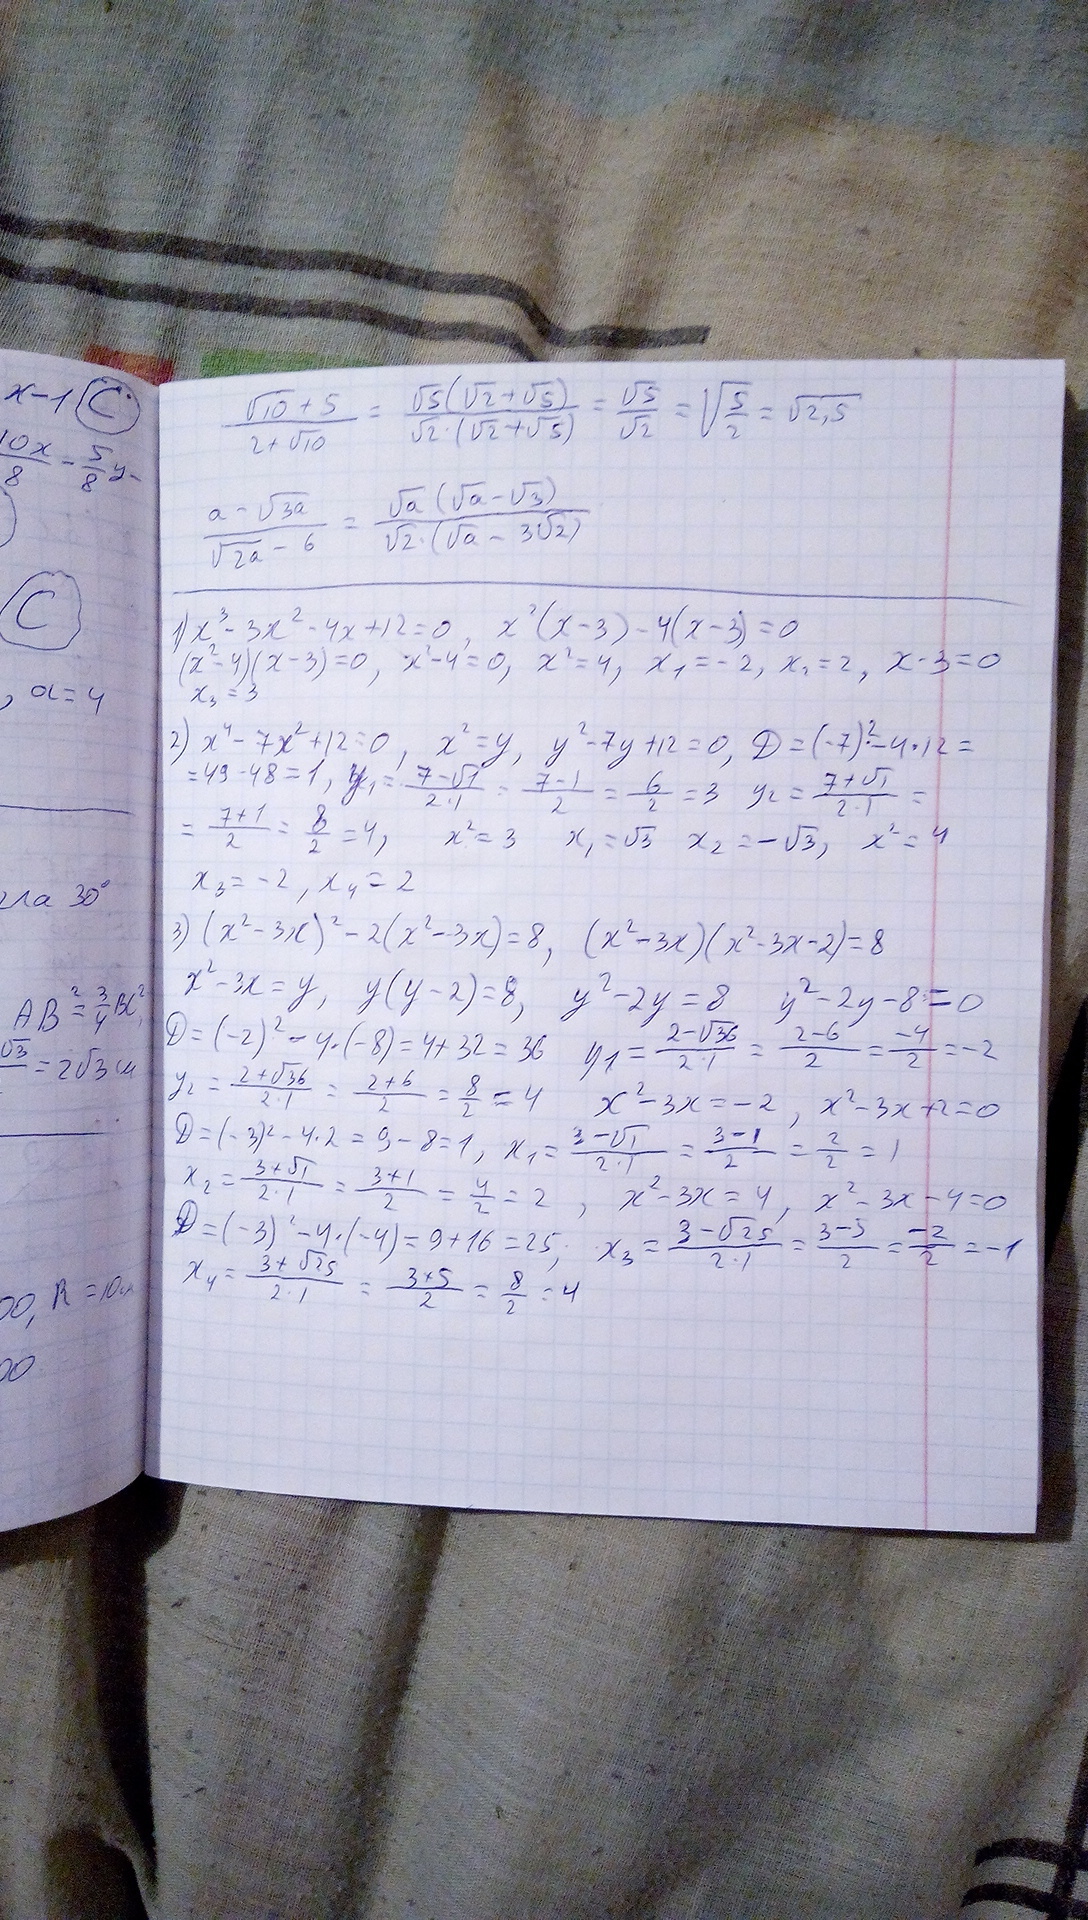 x-1 C
10x/8 - 5/8 y-
C
, a=4
ла 30°
AB² = 3/4 BC²,
√3 = 2√3 см
00, R = 10см
00
(√10 + 5)/(2 + √10) = (√5(√2+√5))/(√2·(√2+√5)) = √5/√2 = √(5/2) = √2,5
(a - √3a)/(√2a - 6) = (√a(√a-√3))/(√2·(√a - 3√2))
1) x³ - 3x² - 4x + 12 = 0, x²(x-3) - 4(x-3) = 0
(x²-4)(x-3)=0, x²-4=0, x²=4, x₁=-2, x₂=2, x-3=0
x₃=3
2) x⁴ - 7x² + 12 = 0, x² = y, y² - 7y + 12 = 0, D = (-7)² - 4·12 =
= 49 - 48 = 1, y₁ = (7-√1)/(2·1) = (7-1)/2 = 6/2 = 3 y₂ = (7+√1)/(2·1) =
= (7+1)/2 = 8/2 = 4, x² = 3 x₁ = √3 x₂ = -√3, x² = 4
x₃ = -2, x₄ = 2
3) (x² - 3x)² - 2(x² - 3x) = 8, (x² - 3x)(x² - 3x - 2) = 8
x² - 3x = y, y(y-2) = 8, y² - 2y = 8 y² - 2y - 8 = 0
D = (-2)² - 4·(-8) = 4 + 32 = 36 y₁ = (2-√36)/(2·1) = (2-6)/2 = -4/2 = -2
y₂ = (2+√36)/(2·1) = (2+6)/2 = 8/2 = 4 x² - 3x = -2, x² - 3x + 2 = 0
D = (-3)² - 4·2 = 9 - 8 = 1, x₁ = (3-√1)/(2·1) = (3-1)/2 = 2/2 = 1
x₂ = (3+√1)/(2·1) = (3+1)/2 = 4/2 = 2, x² - 3x = 4, x² - 3x - 4 = 0
D = (-3)² - 4·(-4) = 9 + 16 = 25, x₃ = (3-√25)/(2·1) = (3-5)/2 = -2/2 = -1
x₄ = (3+√25)/(2·1) = (3+5)/2 = 8/2 = 4